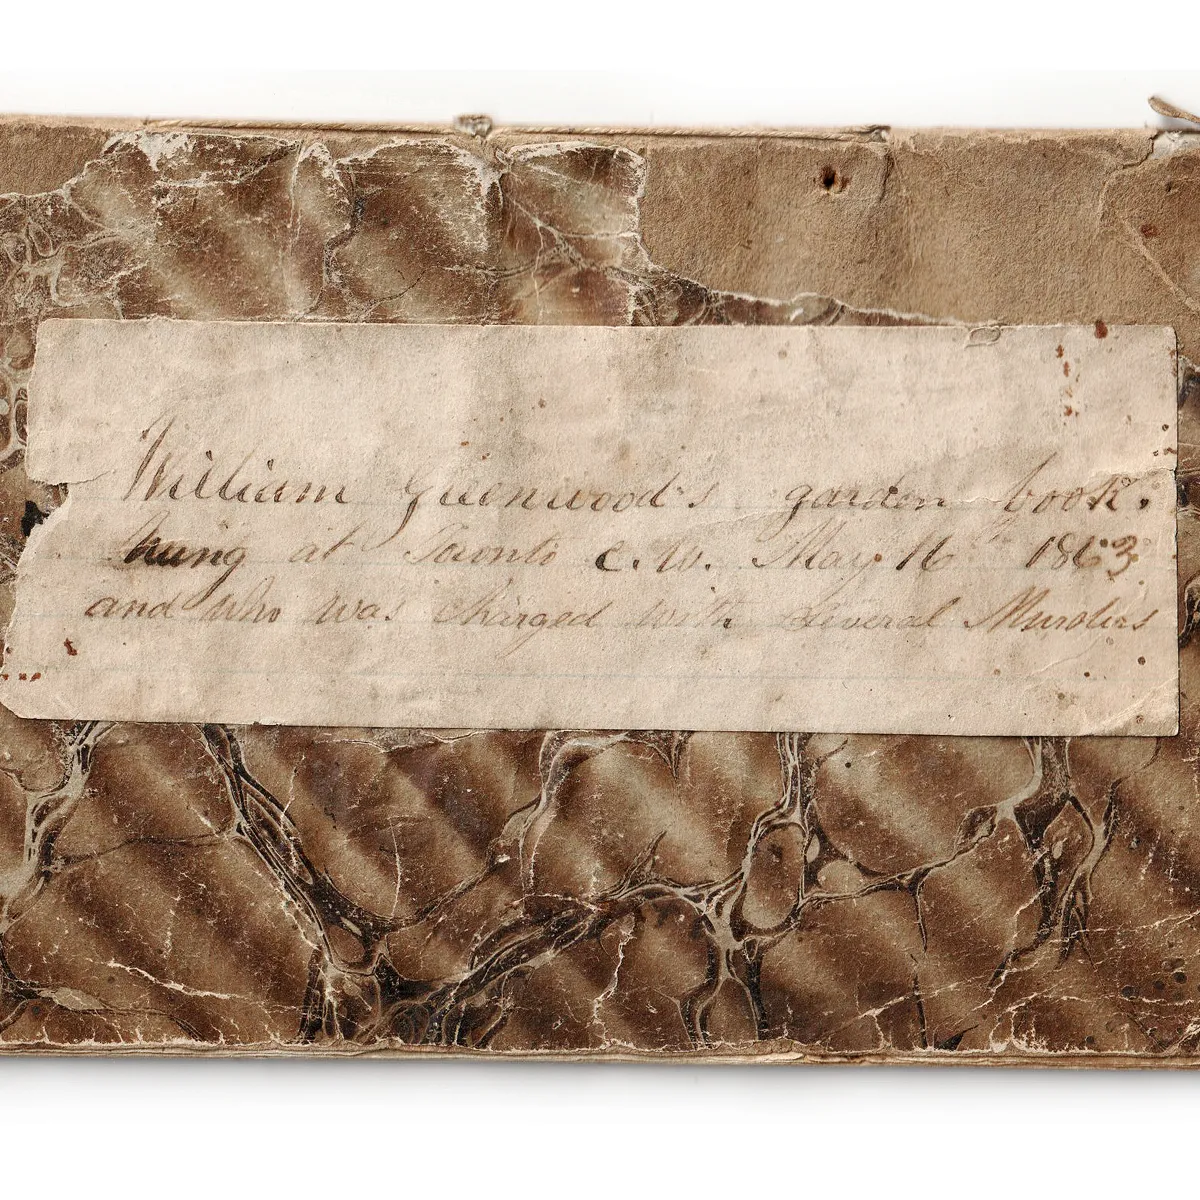 William Greenwood's garden book.
hung at Toronto C. W. May 16 1863
and who was charged with several Murders